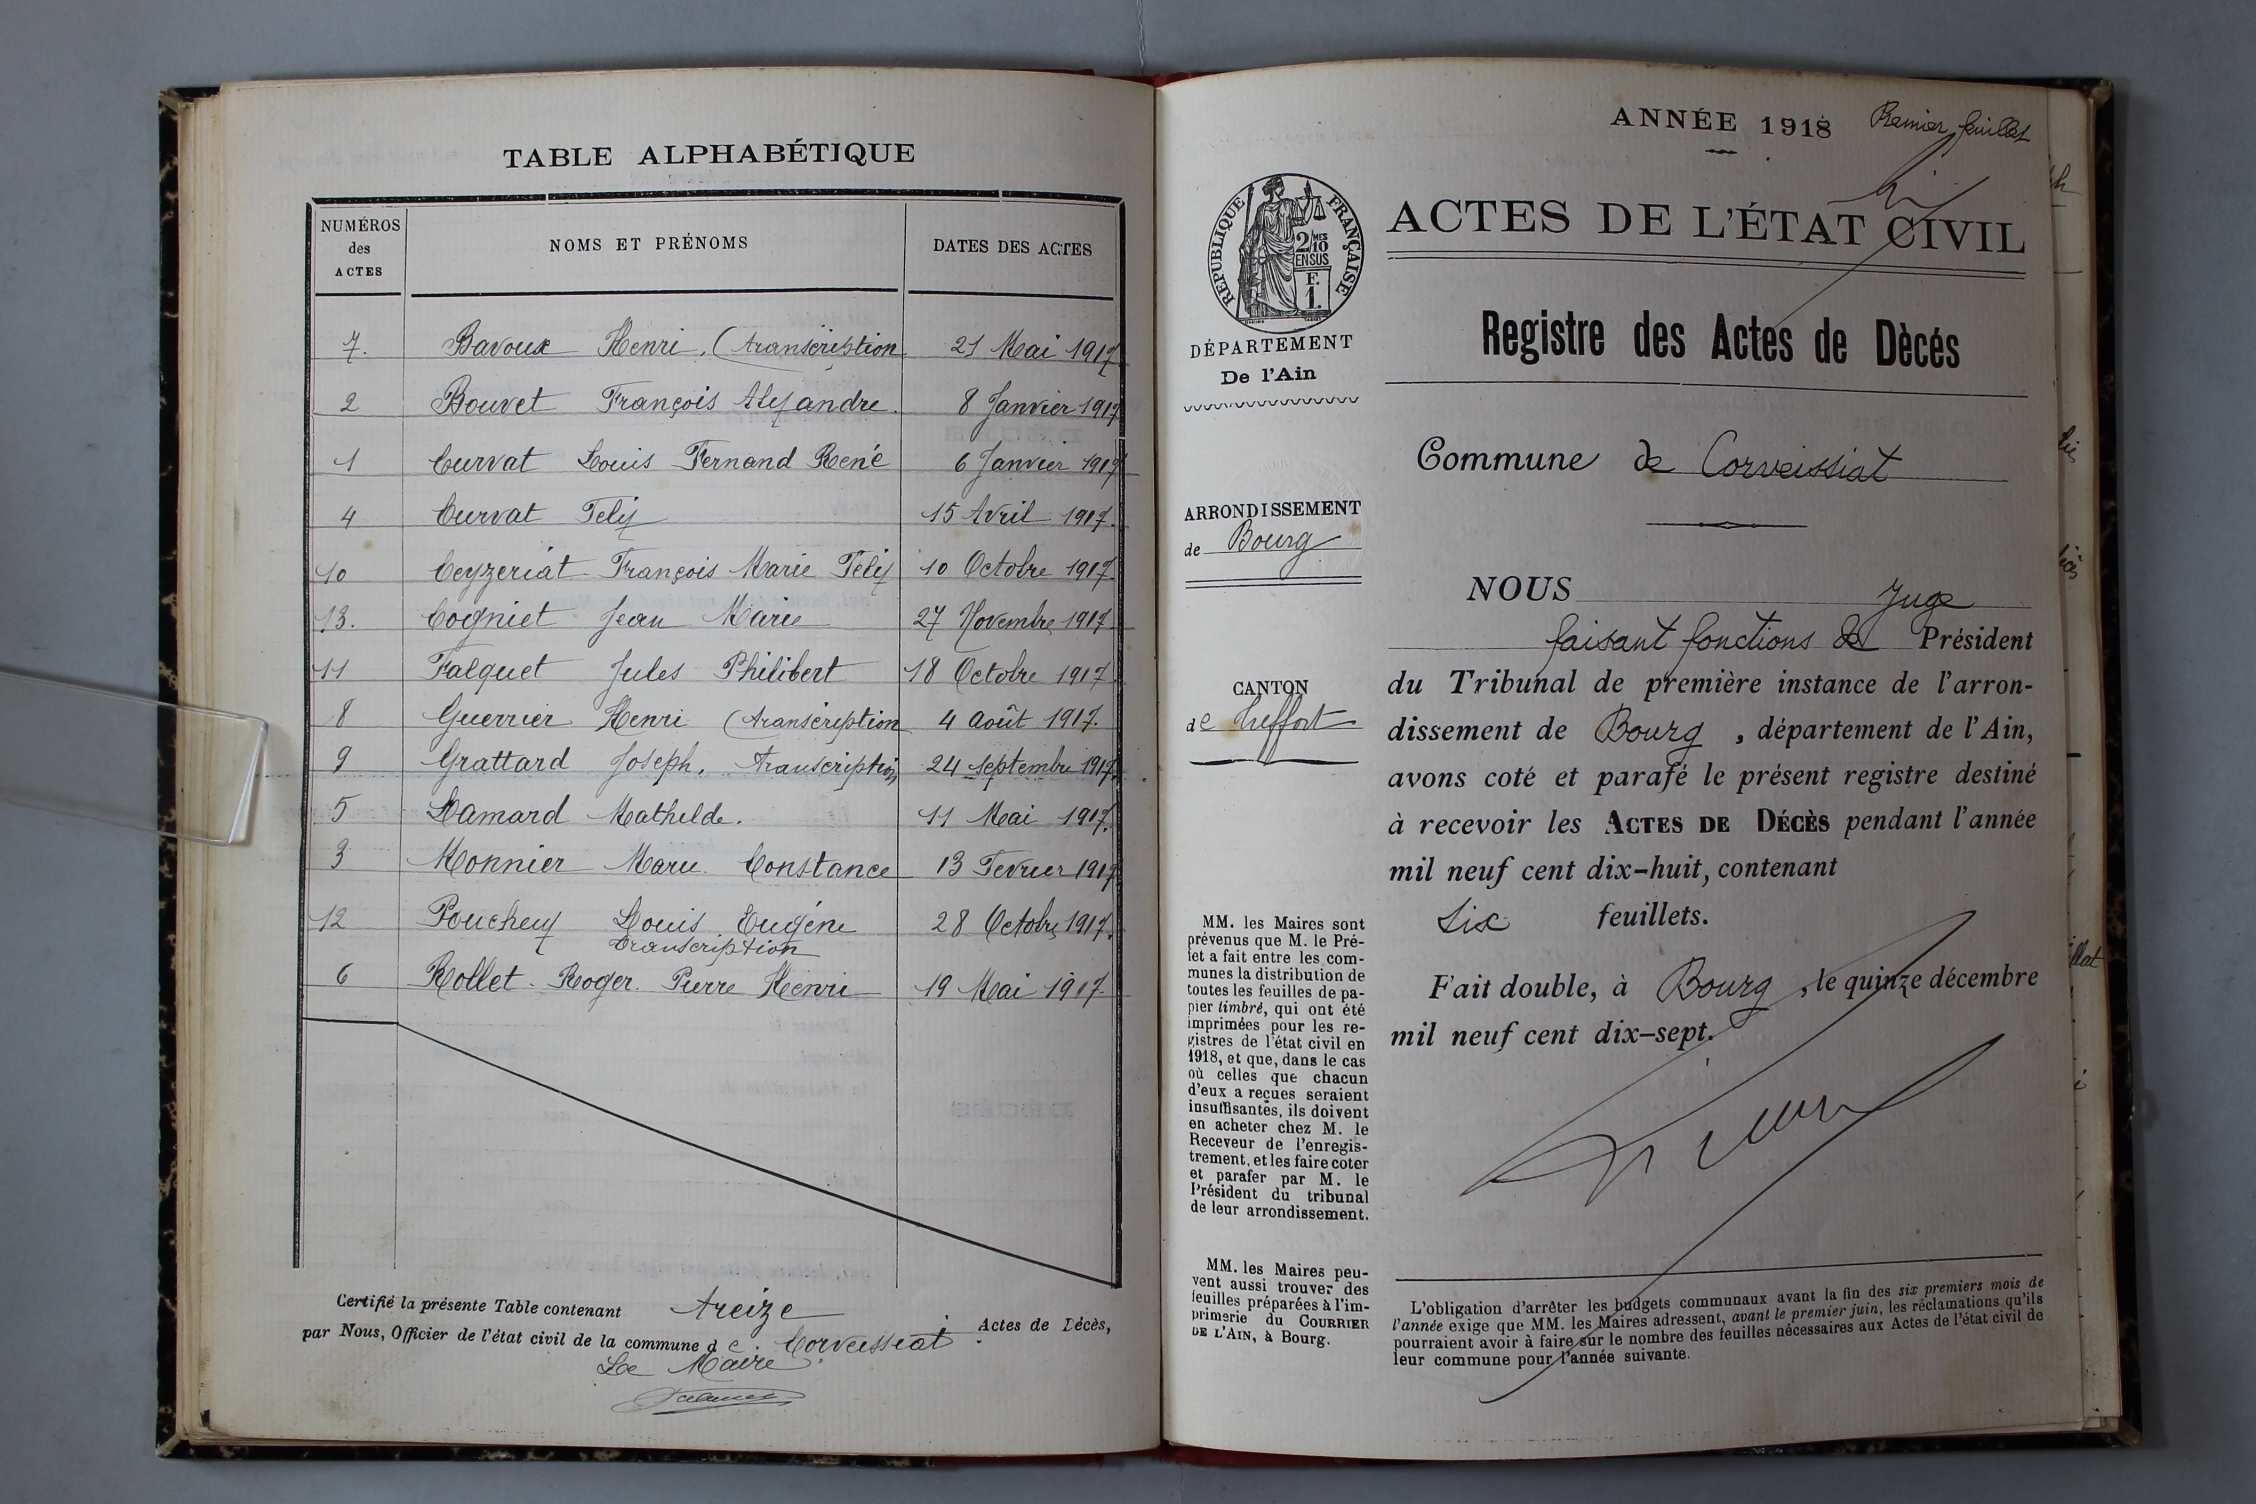 TABLE ALPHABÉTIQUE
NUMÉROS
des
ACTES
NOMS ET PRÉNOMS
DATES DES ACTES
7. Bavoux Henri, (transcription 21 Mai 1917
2 Bouvet François Alexandre. 8 Janvier 1917
1 Curvat Louis Fernand René 6 Janvier 1917
4 Curvat Felix 15 Avril 1917.
10 Ceyzeriat François Marie Félix 10 Octobre 1917.
13. Cogniet Jean Marie 27 Novembre 1917
11 Falquet Jules Philibert 18 Octobre 1917
8 Guerrier Henri (transcription 4 août 1917.
9 Grattard Joseph, transcription 24 septembre 1917.
5 Lamard Mathilde. 11 Mai 1917.
3 Monnier Marie Constance 13 Fevrier 1917
12 Poucheux Louis Eugéne 28 Octobre 1917.
transcription
6 Rollet Roger Pierre Henri 19 Mai 1917.
Certifié la présente Table contenant treize Actes de Décès,
par Nous, Officier de l'état civil de la commune de Corveissiat.
Le Maire
ANNÉE 1918
Premier feuillet
RÉPUBLIQUE FRANÇAISE
2/10 MES
EN SUS
F.
1.
DÉPARTEMENT
De l'Ain
ARRONDISSEMENT
de Bourg
CANTON
de Treffort
MM. les Maires sont
prévenus que M. le Pré-
fet a fait entre les com-
munes la distribution de
toutes les feuilles de pa-
pier timbré, qui ont été
imprimées pour les re-
gistres de l'état civil en
1918, et que, dans le cas
où celles que chacun
d'eux a reçues seraient
insuffisantes, ils doivent
en acheter chez M. le
Receveur de l'enregis-
trement, et les faire coter
et parafer par M. le
Président du tribunal
de leur arrondissement.
MM. les Maires peu-
vent aussi trouver des
feuilles préparées à l'im-
primerie du COURRIER
DE L'AIN, à Bourg.
ACTES DE L'ÉTAT CIVIL
Registre des Actes de Dècés
Commune de Corveissiat
NOUS Juge
faisant fonctions de Président
du Tribunal de première instance de l'arron-
dissement de Bourg, département de l'Ain,
avons coté et parafé le présent registre destiné
à recevoir les ACTES DE DÉCÈS pendant l'année
mil neuf cent dix-huit, contenant
Six feuillets.
Fait double, à Bourg, le quinze décembre
mil neuf cent dix-sept.
L'obligation d'arrêter les budgets communaux avant la fin des six premiers mois de
l'année exige que MM. les Maires adressent, avant le premier juin, les réclamations qu'ils
pourraient avoir à faire sur le nombre des feuilles nécessaires aux Actes de l'état civil de
leur commune pour l'année suivante.